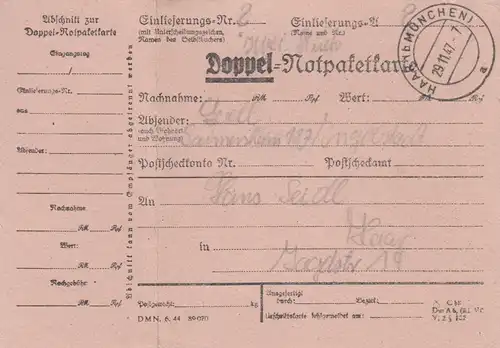 Abschnitt zur
Doppel-Notpaketkarte
Eingangstag
/
Einlieferungs-Nr.
aus
Absender:
Nachnahme
RM Rpf
Wert:
RM Rpf
Nachgebühr
RM Rpf
Abschnitt kann vom Empfänger abgetrennt werden
Einlieferungs-Nr. 2
(mit Unterscheidungszeichen,
Namen des Verbuchers)
Einlieferungs-A
(Name und Nr.
HAAR (b MÜNCHEN)
29.11.47.-7
a
Doppel=Notpaketkar
Nachnahme: RM Rpf Wert: RM Rpf
Absender: Seidl
(auch Gebäude
und Wohnung) Ingolstadt
Postscheckkonto Nr. Postscheckamt
An Hans Seidl
Haar
in
Jagdstr 19
Postgewicht: kg
Ausgefertigt
durch: Bezirk:
Unschriftskarte beschlagnahmt am:
DMN. 6. 44 89 020